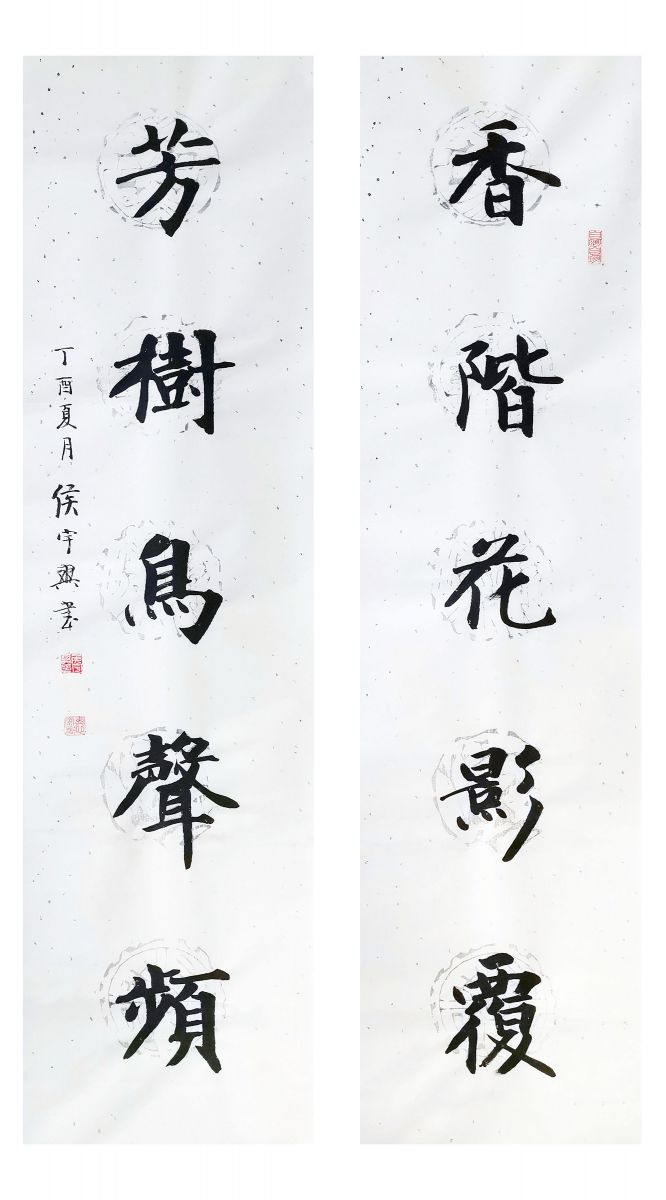 香階花影覆
芳樹鳥聲頻
丁酉夏月侯宇興書